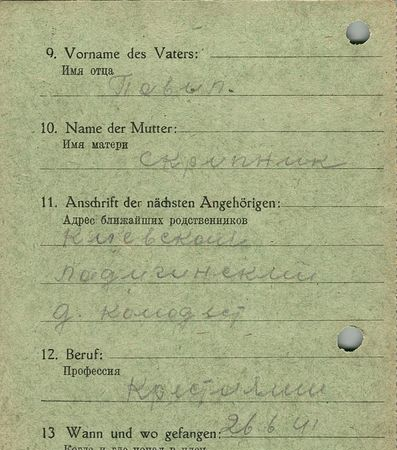 9. Vorname des Vaters:
Имя отца
Павып.
10. Name der Mutter:
Имя матери
Скрипник
11. Anschrift der nächsten Angehörigen:
Адрес ближайших родственников
Киевской
д. Колодыст
12. Beruf:
Профессия
Крестьянин
13 Wann und wo gefangen: 26.6.41
Когда и где попал в плен